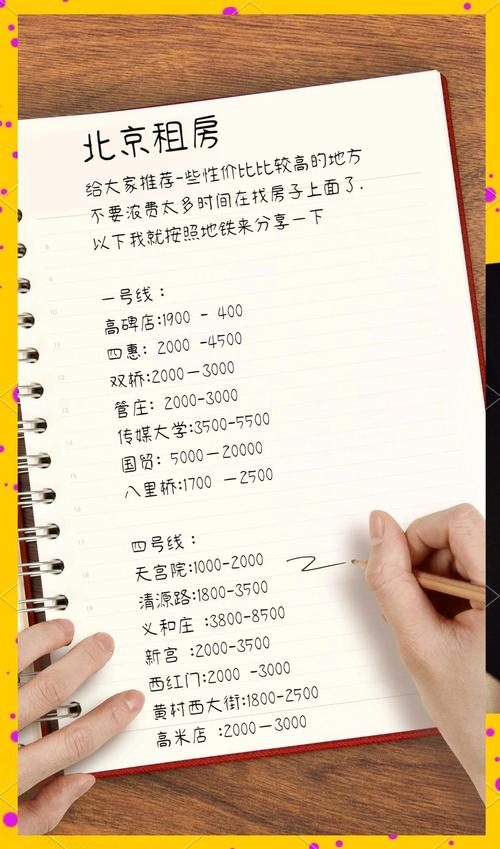 北京租房
给大家推荐一些性价比比较高的地方
不要浪费太多时间在找房子上面了.
以下我就按照地铁来分享一下
一号线：
高碑店:1900 - 400
四惠: 2000 -4500
双桥:2000—3000
管庄: 2000-3000
传媒大学:3500-5500
国贸: 5000—20000
八里桥:1700 —2500
四号线：
天宫院:1000-2000
清源路:1800-3500
义和庄 :3800-8500
新宫 :2000-3500
西红门:2000 -3000
黄村西大街:1800-2500
高米店 :2000—3000